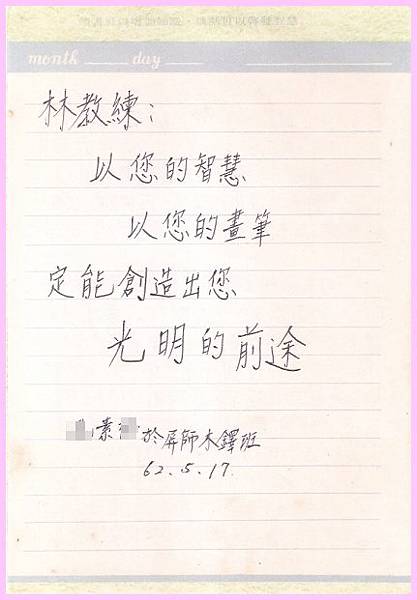 month ____ day ____
林教練：
以您的智慧
以您的畫筆
定能創造出您
光明的前途
素 於屏師木鐸班
62.5.17.